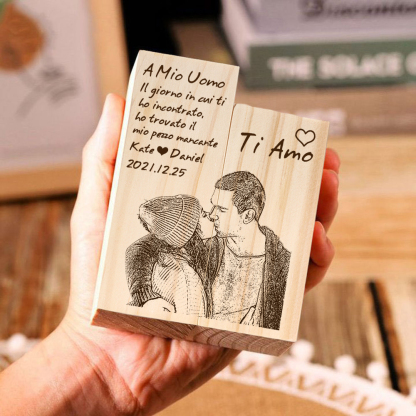 A Mio Uomo
Il giorno in cui ti
ho incontrato,
ho trovato il
mio pezzo mancante
Kate ♥ Daniel
2021.12.25
Ti Amo ♡
THE SOLACE O